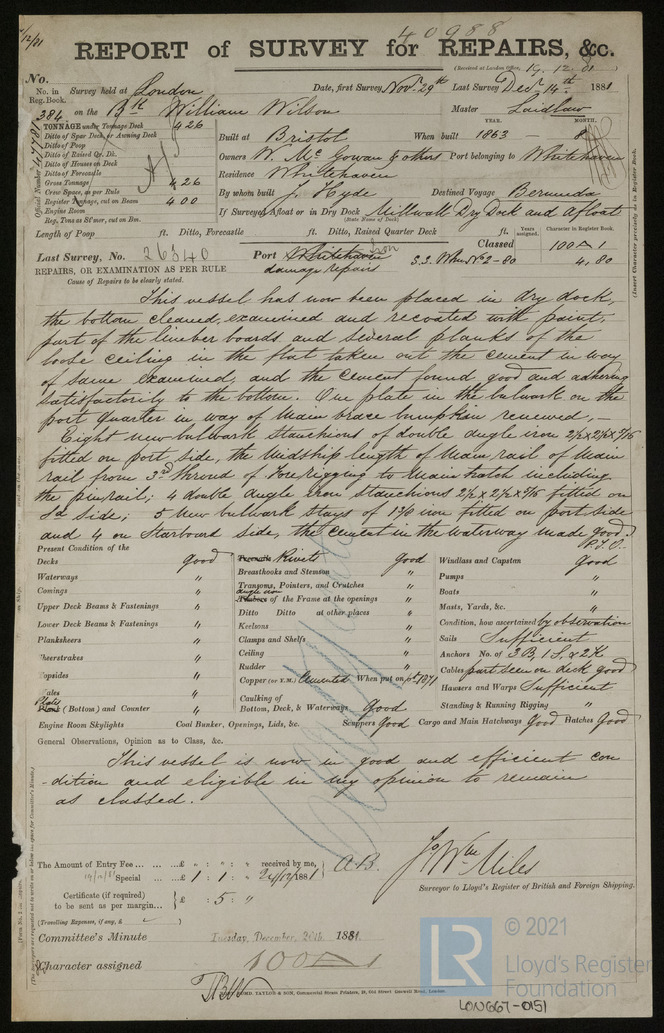 1/12/81
40988
REPORT of SURVEY for REPAIRS, &c.
(Received at London Office, 19.12.81
No.
No. in Reg. Book. Survey held at London Date, first Survey Nov.r 29th Last Survey Dec.r 14th 1881
384 on the Bk William Wilson Master Laidlaw
TONNAGE under Tonnage Deck 426
Ditto of Spar Deck or Awning Deck
Ditto of Poop
Ditto of Raised Qr. Dk.
Ditto of House on Deck
Ditto of Forecastle
Gross Tonnage 426
Crew Space, as per Rule
Register Tonnage, cut on Beam 400
Engine Room
Reg. Tons as St'mer, cut on Bm.
Official Number
YEAR. MONTH.
Built at Bristol When built 1863 8
Owners W. McGowan & others Port belonging to Whitehaven
Residence Whitehaven
By whom built J. Hyde Destined Voyage Bermuda
If Surveyed Afloat or in Dry Dock Millwall Dry Dock and Afloat
(State Name of Dock)
Length of Poop ft. Ditto, Forecastle ft. Ditto, Raised Quarter Deck ft.
Years assigned. Character in Register Book.
(Insert Character precisely as in Register Book.
Last Survey, No. 26340 Port Whitehaven Iron Classed 100 A 1
S.S. Whn No 2-80 4.80
REPAIRS, OR EXAMINATION AS PER RULE damage repairs
Cause of Repairs to be clearly stated.
This vessel has now been placed in dry dock,
the bottom cleaned, examined and recoated with paint,
part of the limber boards and several planks of the
loose ceiling in the flat taken out the cement in way
of same examined, and the cement found good and adhering
satisfactorily to the bottom. One plate in the bulwark on the
port quarter in way of Main brace bumpkin renewed,
Eight new bulwark stanchions of double angle iron 2½x2½x5/16
fitted on port side, the Midship length of Main rail of Main
rail from 3rd shroud of Fore rigging to Main hatch including
the pinrail; 4 double angle iron stanchions 2½x2½x5/16 fitted on
Sd side; 5 New bulwark stays of iron fitted on port side
and 4 on Starboard side, the cement in the waterway made good.
P.T.O.
Present Condition of the
Decks Good
Waterways "
Comings "
Upper Deck Beams & Fastenings "
Lower Deck Beams & Fastenings "
Planksheers "
Sheerstrakes "
Topsides "
Wales "
Plates (Bottom) and Counter "
Engine Room Skylights
Treenails Rivets Good
Breasthooks and Stemson "
Transoms, Pointers, and Crutches "
angle iron Timbers of the Frame at the openings "
Ditto Ditto at other places "
Keelsons "
Clamps and Shelfs "
Ceiling "
Rudder "
Copper (or Y.M.) Cemented When put on pt 1871
Caulking of Bottom, Deck, & Waterways Good
Coal Bunker, Openings, Lids, &c. Scuppers Good Cargo and Main Hatchways Good Hatches Good
Windlass and Capstan Good
Pumps "
Boats "
Masts, Yards, &c. "
Condition, how ascertained by observation
Sails Sufficient
Anchors No. of 3 B, 1 S, & 2 K
Cables part seen on deck good
Hawsers and Warps Sufficient
Standing & Running Rigging "
General Observations, Opinion as to Class, &c.
This vessel is now in good and efficient con
-dition and eligible in my opinion to remain
as classed.
The Amount of Entry Fee ... ... ... £ " : " : " received by me,
Special ... £ 1 : 1 : " 24/12/1881
A.B.
Certificate (if required) to be sent as per margin... £ : 5 : "
(Travelling Expenses, if any, £
Jo Wm Miles
Surveyor to Lloyd's Register of British and Foreign Shipping.
Committee's Minute Tuesday, December, 20th 1881.
Character assigned 100 A 1
TAYLOR & SON, Commercial Steam Printers, London.
© 2021
LR
Lloyd's Register
Foundation
LON667-0151